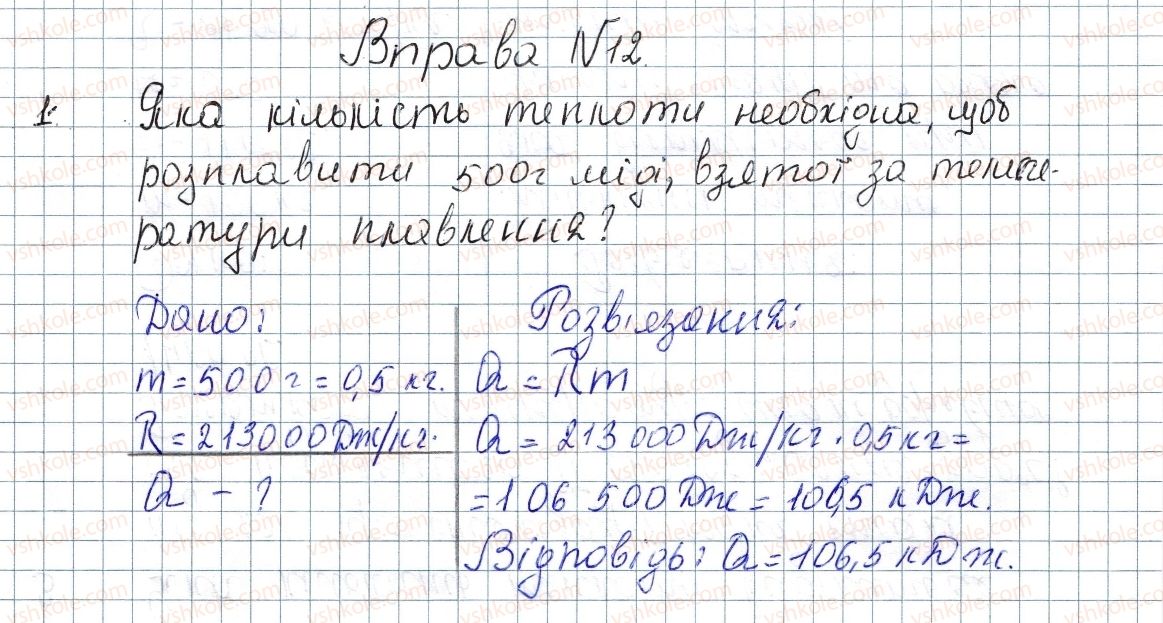 Вправа №12.
1. Яка кількість теплоти необхідна, щоб
розплавити 500г міді, взятої за темпе-
ратури плавлення?
Дано:
m = 500 г = 0,5 кг.
R = 213000 Дж/кг.
Q - ?
Розв'язання:
Q = Rm
Q = 213 000 Дж/кг · 0,5 кг =
= 106 500 Дж = 106,5 кДж.
Відповідь: Q = 106,5 кДж.